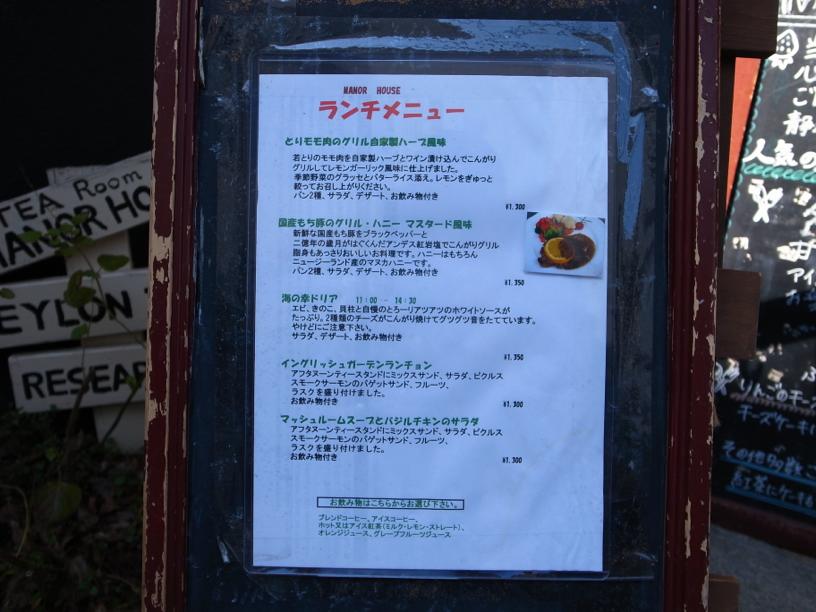 MANOR HOUSE
ランチメニュー
とりモモ肉のグリル自家製ハーブ風味
若とりのモモ肉を自家製ハーブとワイン漬け込んでこんがり
グリルしてレモンガーリック風味に仕上げました。
季節野菜のグラッセとバターライス添え。レモンをぎゅっと
絞ってお召し上がりください。
パン2種、サラダ、デザート、お飲み物付き
¥1,300
国産もち豚のグリル・ハニー マスタード風味
新鮮な国産もち豚をブラックペッパーと
二億年の歳月がはぐくんだアンデス紅岩塩でこんがりグリル
脂身もあっさりおいしいお料理です。ハニーはもちろん
ニュージーランド産のマヌカハニーです。
パン2種、サラダ、デザート、お飲み物付き
¥1,350
海の幸ドリア 11:00 - 14:30
エビ、きのこ、貝柱と自慢のとろーリアツアツのホワイトソースが
たっぷり。2種類のチーズがこんがり焼けてグツグツ音をたてています。
やけどにご注意下さい。
サラダ、デザート、お飲み物付き
¥1,350
イングリッシュガーデンランチョン
アフタヌーンティースタンドにミックスサンド、サラダ、ピクルス
スモークサーモンのバゲットサンド、フルーツ、
ラスクを盛り付けました。
お飲み物付き
¥1,300
マッシュルームスープとバジルチキンのサラダ
アフタヌーンティースタンドにミックスサンド、サラダ、ピクルス
スモークサーモンのバゲットサンド、フルーツ、
ラスクを盛り付けました。
お飲み物付き
¥1,300
お飲み物はこちらからお選び下さい。
ブレンドコーヒー、アイスコーヒー、
ホット又はアイス紅茶(ミルク・レモン・ストレート)、
オレンジジュース、グレープフルーツジュース
TEA Room
MANOR HO
EYLON
RESEAR
人気の
りんごのチー
チーズケーキ
その他多数ご
紅茶にケーキ